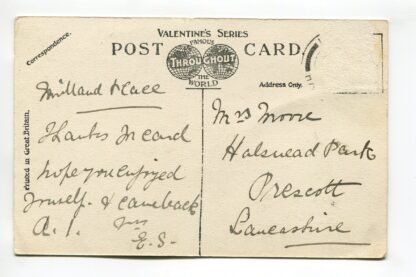 VALENTINE'S SERIES
POST CARD
FAMOUS
THROUGHOUT
THE
WORLD
Correspondence.
Address Only.
Printed in Great Britain.
Thanks card
hope you enjoyed
yourself & came back
A.1.
E. S.
Mrs Moore
Halsnead Park
Prescott
Lancashire